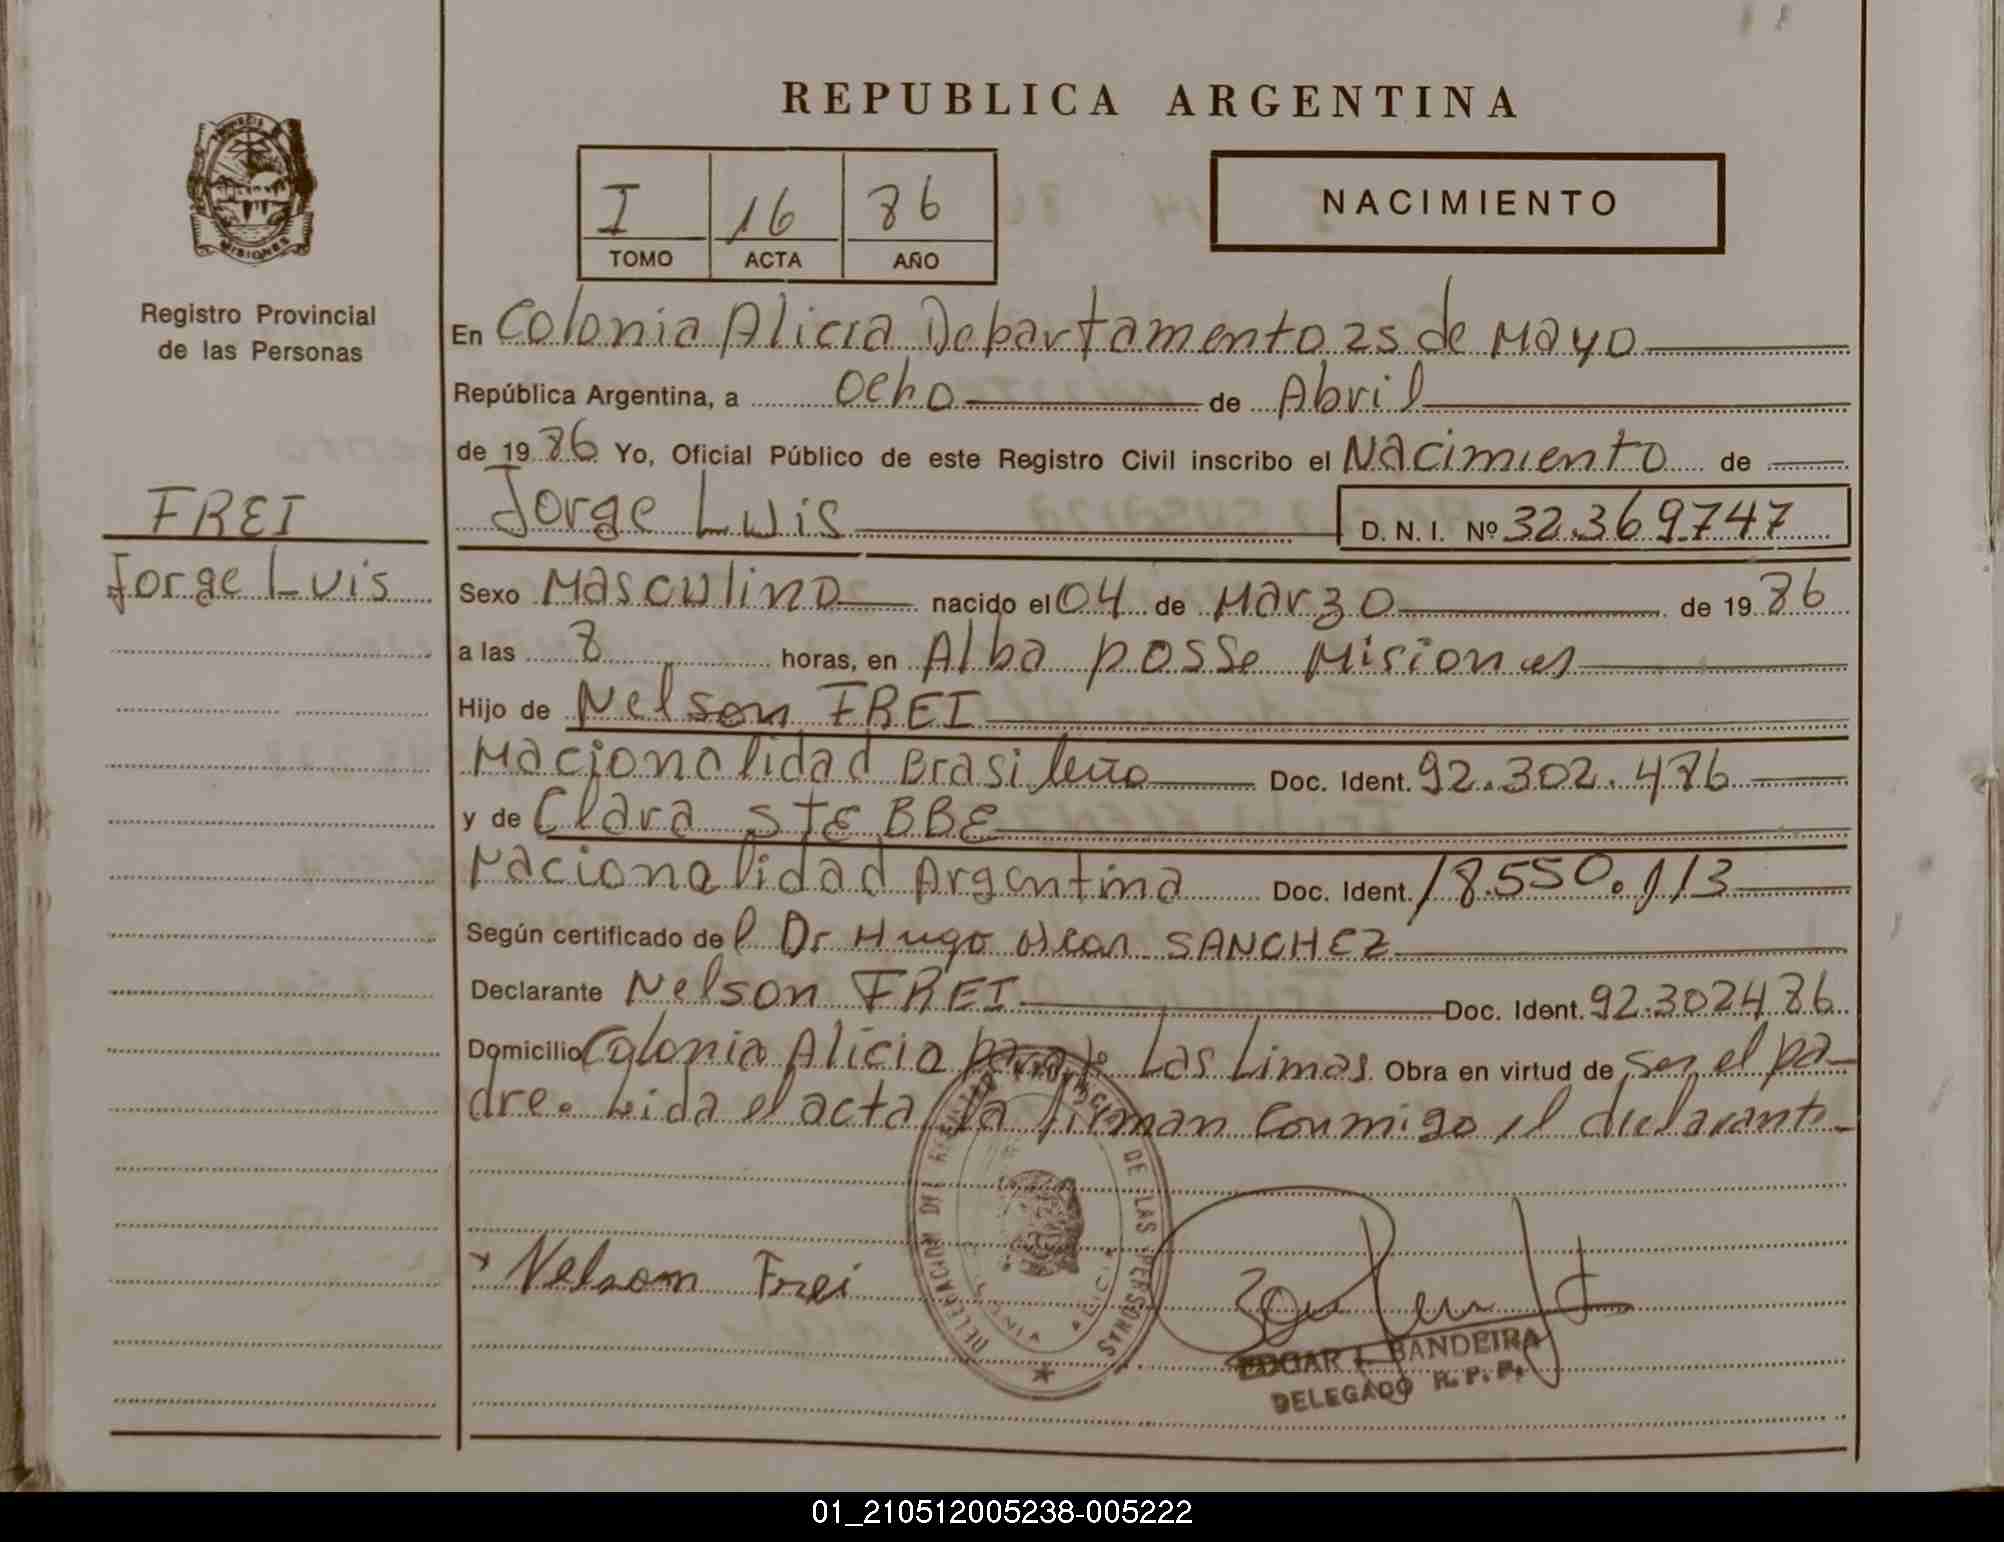 REPUBLICA ARGENTINA
MISIONES
Registro Provincial
de las Personas
I 16 86
TOMO ACTA AÑO
NACIMIENTO
FREI
Jorge Luis
En Colonia Alicia Departamento 25 de Mayo
República Argentina, a Ocho de Abril
de 19 86 Yo, Oficial Público de este Registro Civil inscribo el Nacimiento de
Jorge Luis D. N. I. Nº 32.369.747
Sexo Masculino nacido el 04 de Marzo de 19 86
a las 8 horas, en Alba posse Misiones
Hijo de Nelson FREI
Nacionalidad Brasileño Doc. Ident. 92.302.486
y de Clara STEBBE
Nacionalidad Argentina Doc. Ident. 18.550.113
Según certificado del Dr Hugo Oscar SANCHEZ
Declarante Nelson FREI Doc. Ident. 92.302486
Domicilio Colonia Alicia Las Limas Obra en virtud de ser el pa-
dre. Leida el acta la firman conmigo el declarante
Nelsom Frei
DELEGACION DE LAS PERSONAS
EDGAR BANDEIRA
DELEGADO R. P. P.
01_210512005238-005222